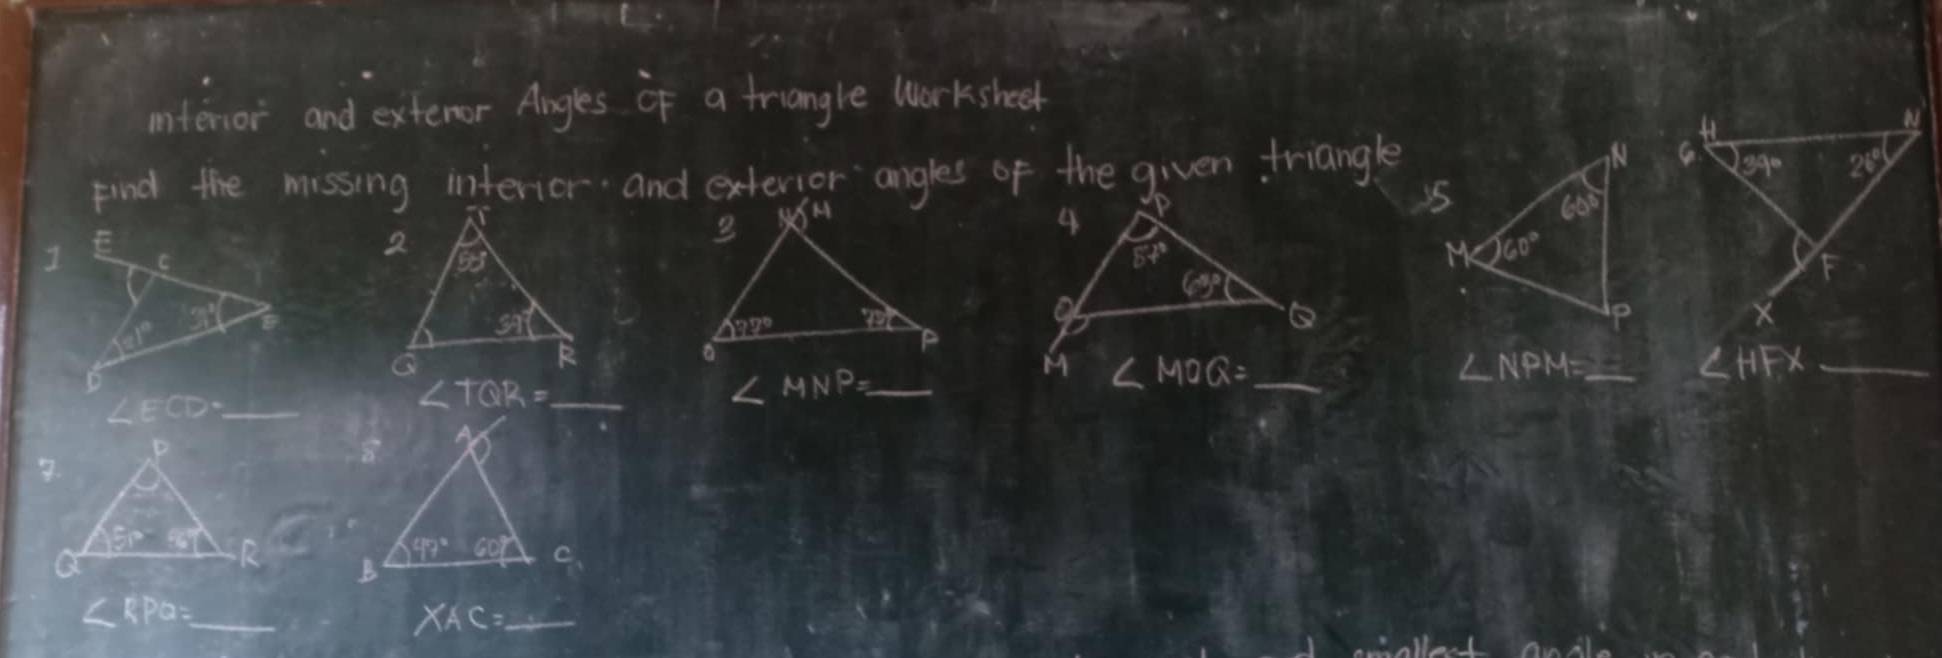 interior and exterior Angles of a triangle Worksheet
Find the missing interior and exterior angles of the given triangle
1 E C D
∠ECD=____
2 T Q R
∠TQR=____
3 M O 77° P
∠MNP=____
4 P 57° 63° O Q M
∠MOQ=____
5 N 60° M 60° P
∠NPM=____
6. H 39° N 26° F X
∠HFX ____
7. P Q 51° R
∠RPQ=____
8 A B 47° 60° C
XAC=____
smallest angle